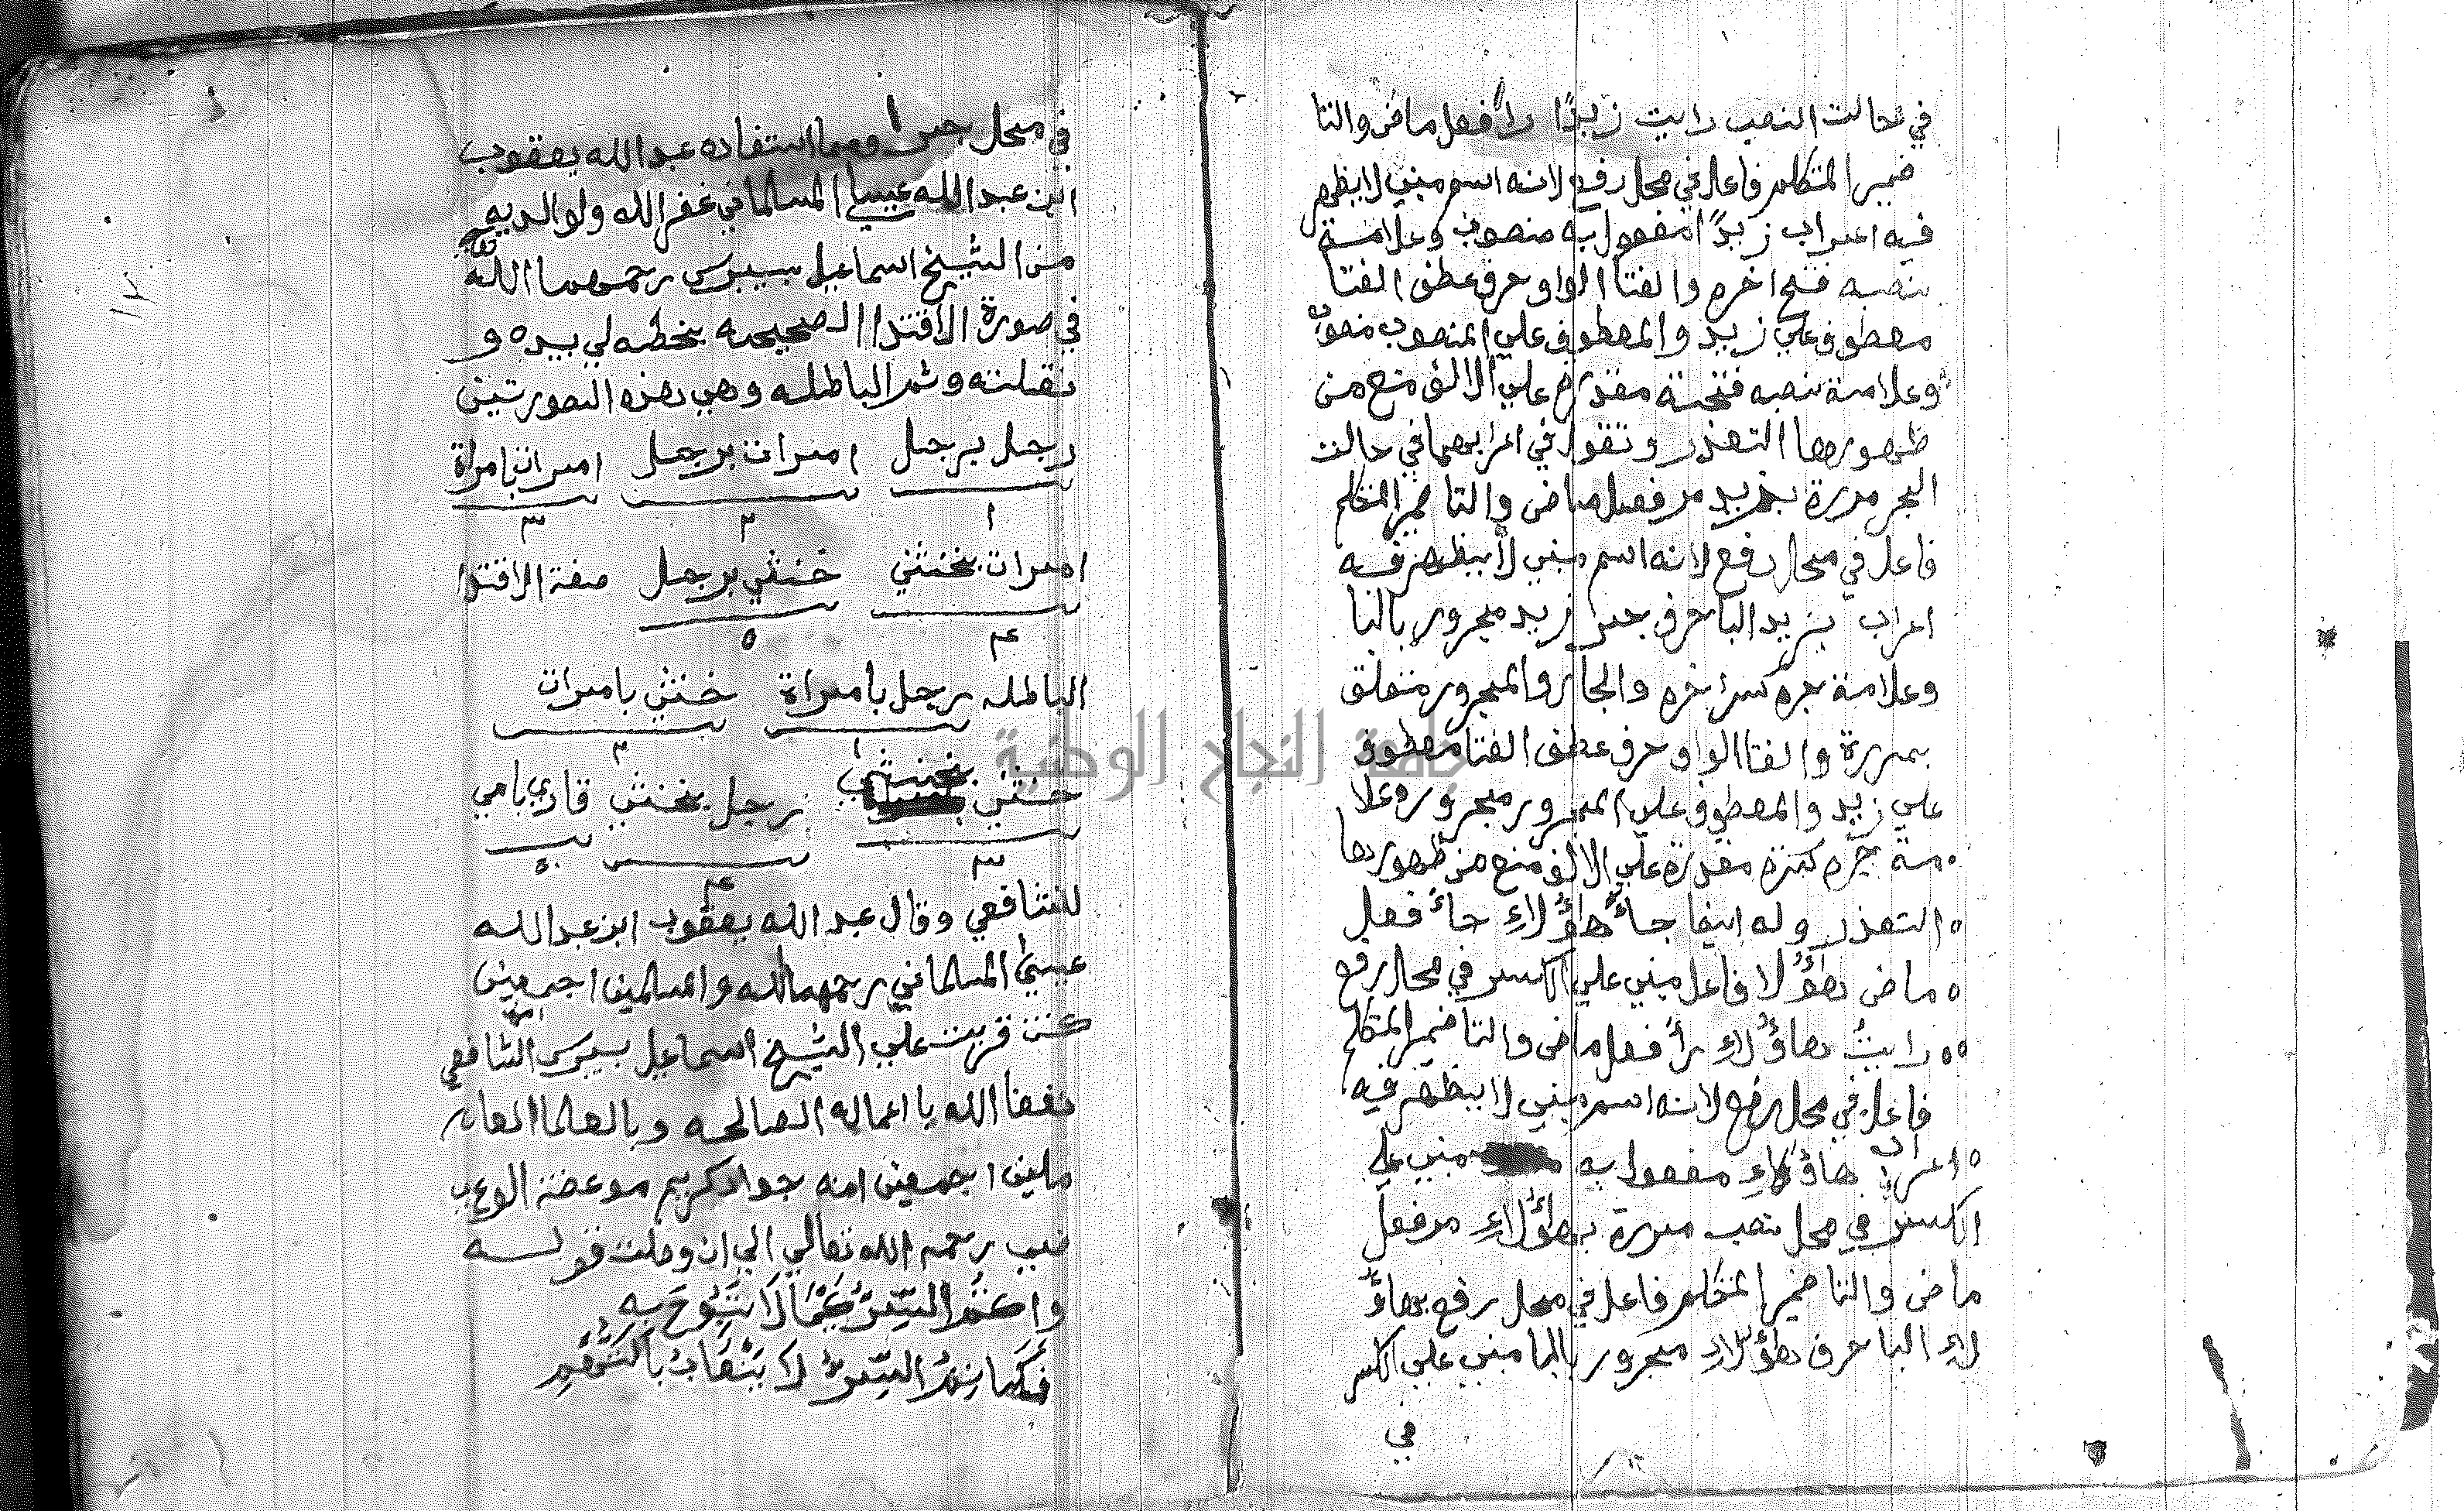 في حالت النصب رايت زيدًا رأ فعل ماض والتا
ضمير المتكلم فاعل في محل رفع لانه اسم مبني لا يظهر
فيه اعراب زيدًا مفعول به منصوب وعلامة
نصبه فتح اخره والفتا الواو حرف عطف الفتا
معطوف علي زيد والمعطوف علي المنصوب منصوب
وعلامة نصبه فتحة مقدرة علي الالف منع من
ظهورها التعذر وتقول في اعرابهما في حالت
الجر مررة بزيد مر فعل ماض والتا ضمير المتكلم
فاعل في محل رفع لانه اسم مبني لا يظهر فيه
اعراب بزيد البا حرف جر زيد مجرور بالبا
وعلامة جره كسر اخره والجار والمجرور متعلق
بمررة والفتا الواو حرف عطف الفتا معطوف
علي زيد والمعطوف علي المجرور مجرور وعلا
مة جره كسرة مقدرة علي الالف منع من ظهورها
التعذر وله ايضا جاء هاؤلاءِ جاء فعل
ماض هاؤلا فاعل مبني علي الكسر في محل رفع
رايتُ هاؤلاءِ رأ فعل ماض والتا ضمير المتكلم
فاعل في محل رفع لانه اسم مبني لا يظهر فيه
اعراب هاؤلاءِ مفعول به مبني علي
الكسر في محل نصب مررة بهاؤلاءِ مر فعل
ماض والتا ضمير المتكلم فاعل في محل رفع بهاؤ
لاءِ البا حرف هاؤلاءِ مجرور بالبا مبني علي الكسر
في
في محل جر ا ومما استفاده عبد الله يعقوب
ابن عبد الله عيسي المسلماني غفر الله ولوالديه
من الشيخ اسماعيل بيبرس رحمهما الله
في صورة الاقتدا الصحيحه بخطه لي بيده و
نقلته وثم الباطله وهي هذه الصورتين
رجل برجل امرات برجل امرات بامراة
١ ٢ ٣
امرات بخنثي خنثي برجل صفة الاقتدا
٤ ٥
الباطله رجل بامراة خنثي بامرات
١ ٢
خنثي بخنثي رجل بخنثي قاري بامي
٣ ٤ ٥
للشافعي وقال عبد الله يعقوب ابن عبد الله
عيسيٰ المسلماني رحمهما الله والمسلمين اجمعين
امين
كنت قريت علي الشيخ اسماعيل بيبرس الشافعي
نفعنا الله با اعماله الصالحه وبالعلما العا
ملين اجمعين انه جواد كريم موعضة
رحمه الله تعالي الي ان وصلت قوله
واكتم السر عما لا تبوح به
جامعة النجاح الوطنية